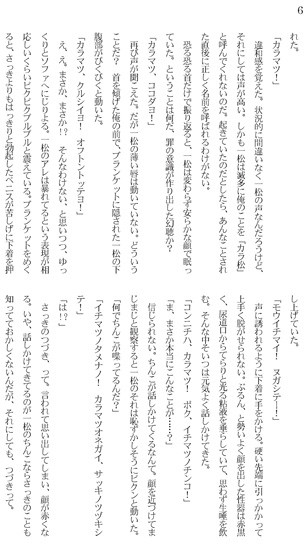 6
れた。
違和感を覚えた。状況的に間違いなく一松の声なんだろうけど、
それにしては声が高い。しかも一松は滅多に俺のことを「カラ松」
と呼んでくれないのだ。起きていたのだとしたら、あんなことされ
た直後に正しく名前を呼ばれるわけがない。
恐る恐る首だけで振り返ると、一松は変わらず安らかな顔で眠っ
ていた。ということは何だ、罪の意識が作り出した幻聴か？
「カラマツ、ココダヨ！」
再び声が聞こえた。だが一松の薄い唇は動いていない。どういう
ことだ？　首を傾げた俺の前で、ブランケットに隠された一松の下
腹部がびくびくと動いた。
「カラマツ、クルシイヨ！　オフトントッテヨー！」
え、え。まさか、まさか！？　そんなわけない、と思いつつ、ゆっ
くりとソファへにじりよる。一松のアレは暴れてるという表現が相
応しいくらいビクビクブルブルと震えている。ブランケットをめく
ると、さっきよりもはっきりと勃起したペニスが苦しげに下着を押
し上げていた。
「モウイチマイ！　ヌガシテー！」
声に誘われるように下着に手をかける。硬い先端に引っかかって
上手く脱がせられない。ぶるん、と勢いよく顔を出した性器は赤黒
く、尿道口からてらりと光る粘液を垂らしていて、思わず生唾を飲
む。そんな中そいつは元気よく話しかけてきた。
「コンニチハ、カラマツ！　ボク、イチマツノチンコ！」
「ま、まさか本当にこんなことが……？」
信じられない。ちんこが話しかけてくるなんて。顔を近づけてま
じまじと観察すると一松のそれは恥ずかしそうにピクンと動いた。
「何でちんこが喋ってるんだ？」
「イチマツノタメナノ！　カラマツオネガイ、サッキノツヅキシ
テ！」
「は！？」
さっきのつづき、って。言われて思い出してしまい、顔が赤くな
る。いや、話しかけてきてるのが一松のちんこならさっきのことも
知ってておかしくないんだが、それにしても、つづきって。